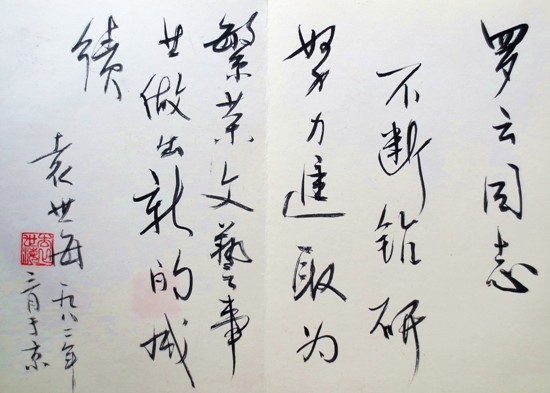 罗云同志
不断钻研
努力進取为
繁荣文藝事
业做出新的成
绩
袁世海
一九八二年
二月于京